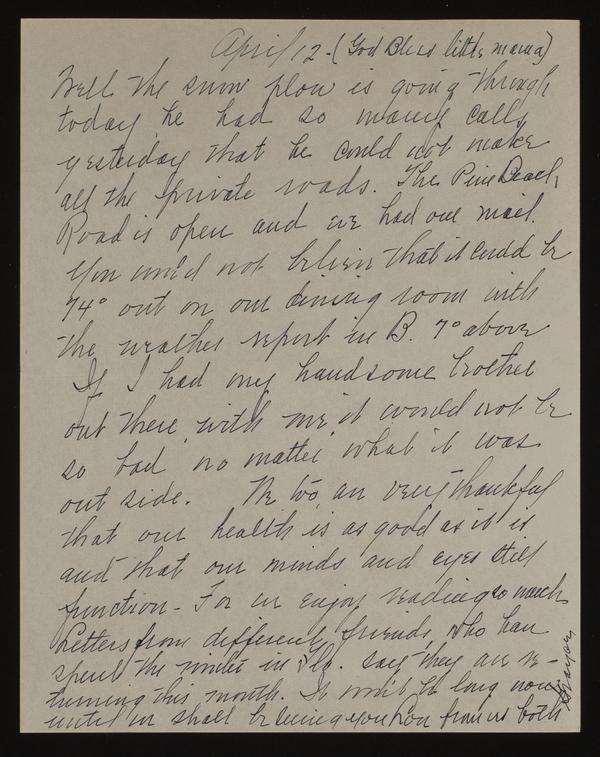 April 12 - (God Bless little mama)
Well the snow plow is going through
today he had so many calls
yesterday that he could not make
all the private roads. The Pine Beach
Road is open and we had our mail.
You would not believe that it could be
74° out on our dining room with
the weather report in B. 7° above
If I had my handsome brother
out there with me it would not be
so bad no matter what it was
out side. We too are very thankful
that our health is as good as it is
and that our minds and eyes still
function - For we enjoy reading so much
Letters from different friends, who have
spent the winter in Fla. say they are re-
turning this month. It won't be long now
until we shall be seeing you Love from us both